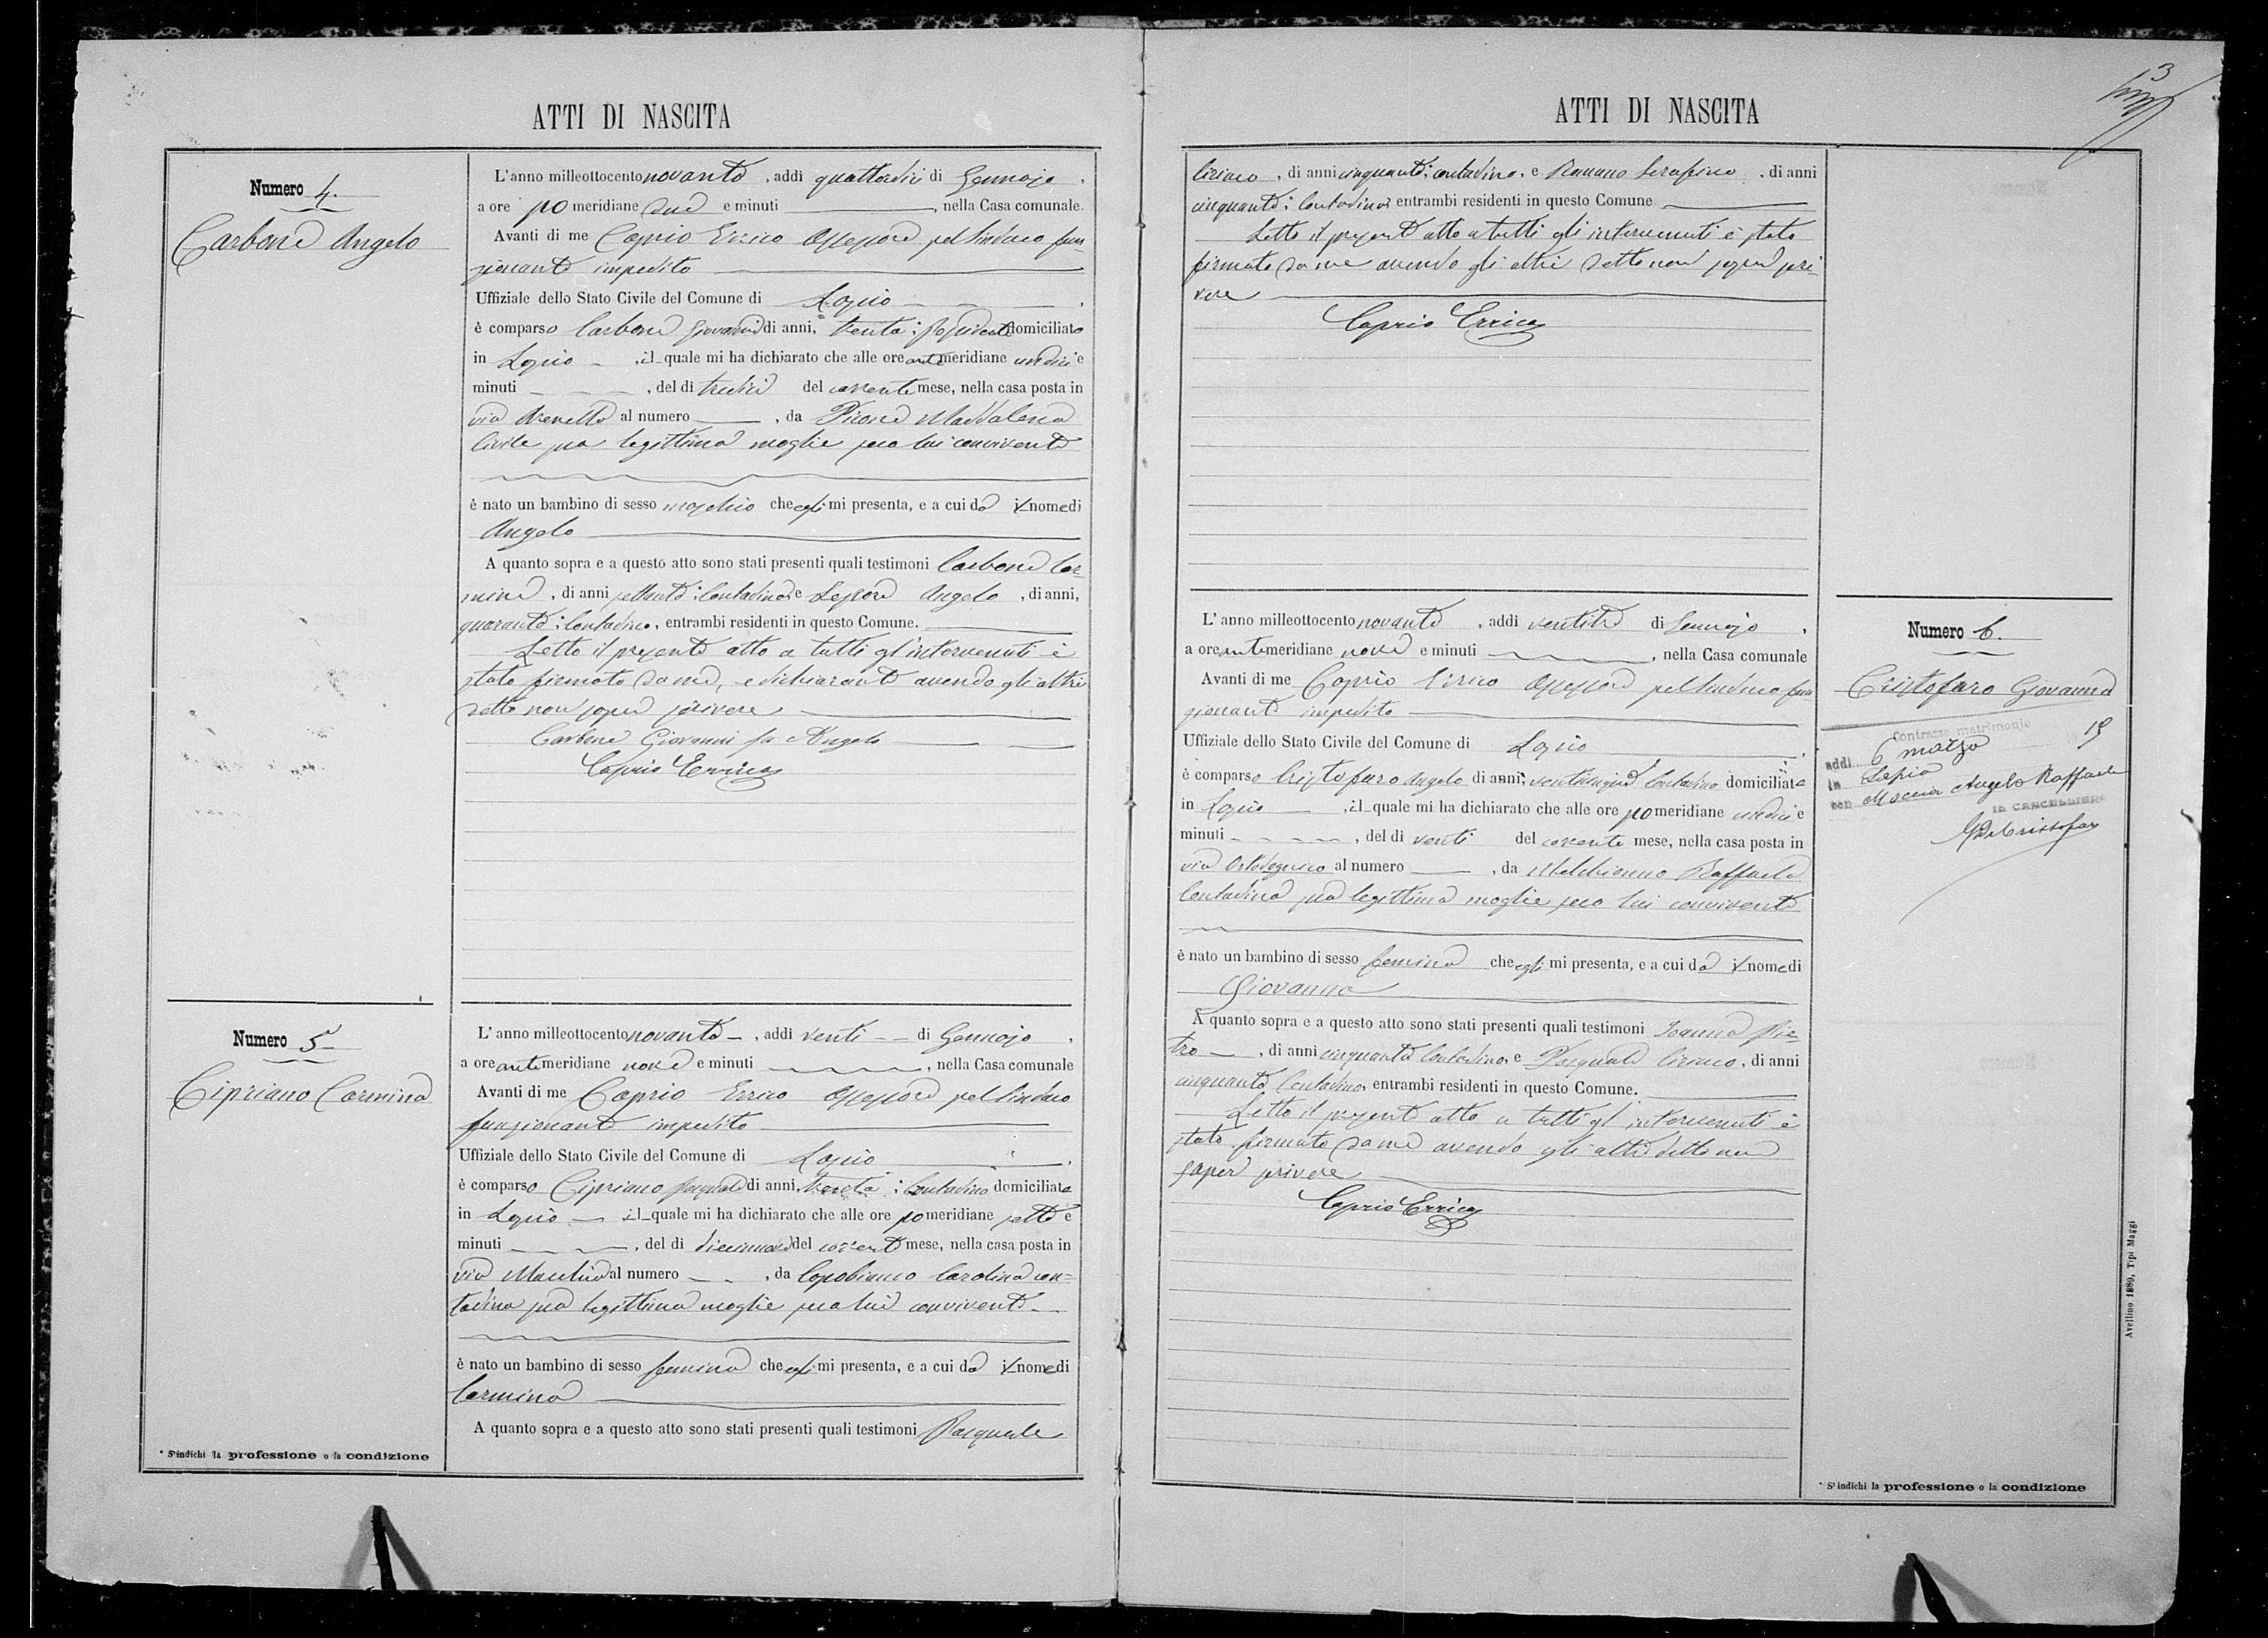 ATTI DI NASCITA
Numero 4.
Carbone Angelo
L'anno milleottocento novanta, addì quattordici di Gennajo,
a ore pomeridiane due e minuti, nella Casa comunale.
Avanti di me Caprio Errico Assessore pel Sindaco fun-
zionante impedito
Uffiziale dello Stato Civile del Comune di Lapio,
è comparso Carbone Giovanni di anni, trenta; domiciliato
in Lapio, il quale mi ha dichiarato che alle ore antimeridiane undici e
minuti, del dì tredici del corrente mese, nella casa posta in
via al numero, da Picone Maddalena
Civile sua legittima moglie seco lui convivente
è nato un bambino di sesso maschio che egli mi presenta, e a cui dà il nome di
Angelo
A quanto sopra e a questo atto sono stati presenti quali testimoni Carbone Car-
mine, di anni settanta; Contadino, e Lepore Angelo, di anni,
quaranta; Contadino, entrambi residenti in questo Comune.
Letto il presente atto a tutti gl'intervenuti è
stato firmato da me, e dichiarante avendo gli altri
detto non saper scrivere
Carbone Giovanni fu Angelo
Caprio Errico
Numero 5
Cipriano Carmina
L'anno milleottocento novanta, addì venti di Gennajo,
a ore antimeridiane nove e minuti, nella Casa comunale
Avanti di me Caprio Errico Assessore pel Sindaco
funzionante impedito
Uffiziale dello Stato Civile del Comune di Lapio,
è comparso Cipriano Pasquale di anni trenta; Contadino domiciliato
in Lapio il quale mi ha dichiarato che alle ore pomeridiane sette e
minuti, del dì diecinnove del corrente mese, nella casa posta in
via al numero, da Capobianco Carolina con-
tadina sua legittima moglie seco lui convivente
è nato un bambino di sesso femina che egli mi presenta, e a cui dà il nome di
Carmina
A quanto sopra e a questo atto sono stati presenti quali testimoni Pasquale
* S'indichi la professione o la condizione
ATTI DI NASCITA
3
Ciriaco, di anni cinquanta; contadino, e Romano Serafino, di anni
cinquanta; Contadino, entrambi residenti in questo Comune
Letto il presente atto a tutti gli intervenuti è stato
firmato da me avendo gli altri detto non saper scri-
vere
Caprio Errico
Numero 6.
Cristofaro Giovanna
Contrasse matrimonio
addì 6 marzo 19
in Lapio
con Moccia Angelo Raffaele
IL CANCELLIERE
L'anno milleottocento novanta, addì ventitre di Gennajo,
a ore antimeridiane nove e minuti, nella Casa comunale
Avanti di me Caprio Errico Assessore pel Sindaco fun-
zionante impedito
Uffiziale dello Stato Civile del Comune di Lapio,
è comparso Cristofaro Angelo di anni; venticinque Contadino domiciliato
in Lapio, il quale mi ha dichiarato che alle ore pomeridiane undici e
minuti, del dì venti del corrente mese, nella casa posta in
via al numero, da Melchionno Raffaela
Contadina sua legittima moglie seco lui convivente
è nato un bambino di sesso femina che egli mi presenta, e a cui dà il nome di
Giovanna
A quanto sopra e a questo atto sono stati presenti quali testimoni Pie-
tro, di anni cinquanta Contadino, e Pasquale Ciriaco, di anni
cinquanta Contadino, entrambi residenti in questo Comune.
Letto il presente atto a tutti gl'intervenuti è
stato firmato da me avendo gli altri detto non
saper scrivere
Caprio Errico
Avellino 1889, Tipi Maggi
* S'indichi la professione o la condizione